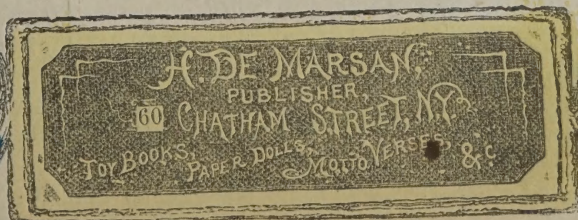 H. DE MARSAN,
PUBLISHER,
60 CHATHAM STREET, N.Y.
TOY BOOKS, PAPER DOLLS, MOTTO VERSES, &c